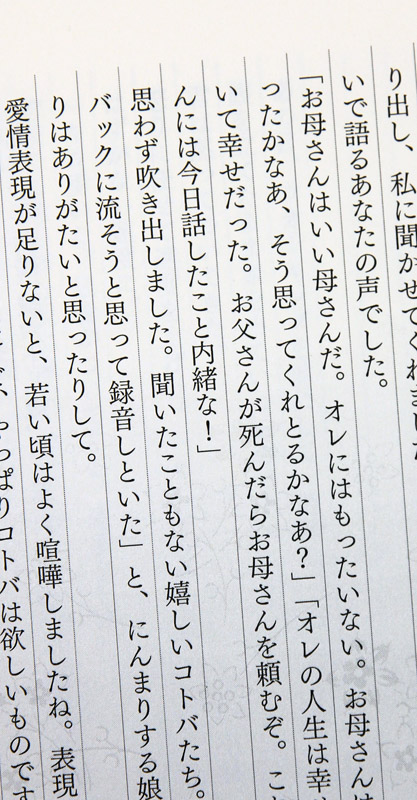 り出し、私に聞かせてくれまし
いで語るあなたの声でした。
「お母さんはいい母さんだ。オレにはもったいない。お母さん
ったかなあ、そう思ってくれとるかなあ?」「オレの人生は幸
いて幸せだった。お父さんが死んだらお母さんを頼むぞ。こ
んには今日話したこと内緒な!」
思わず吹き出しました。聞いたこともない嬉しいコトバたち。
バックに流そうと思って録音しといた」と、にんまりする娘
りはありがたいと思ったりして。
愛情表現が足りないと、若い頃はよく喧嘩しましたね。表現
っぱりコトバは欲しいものです